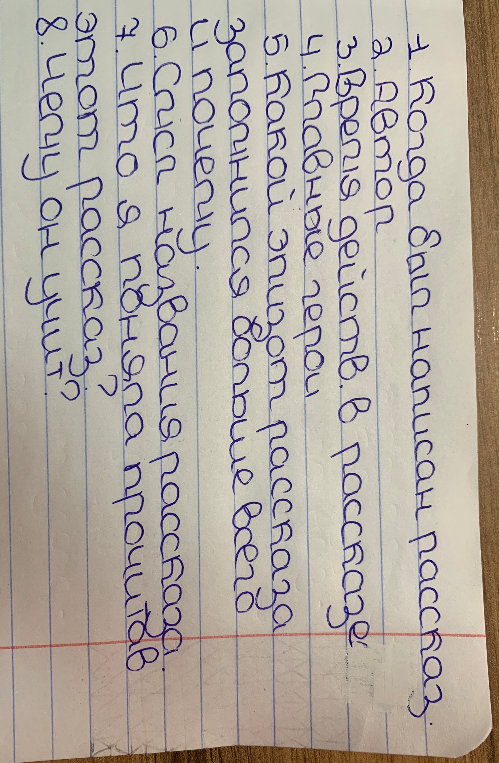 1. Когда был написан рассказ.
2. Автор
3. Время действ. в рассказе
4. Главные герои
5. Какой эпизот рассказа
запомнился больше всего
и почему.
6. Смысл названия рассказа.
7. Что я поняла прочитав
этот рассказ?
8. Чему он учит?